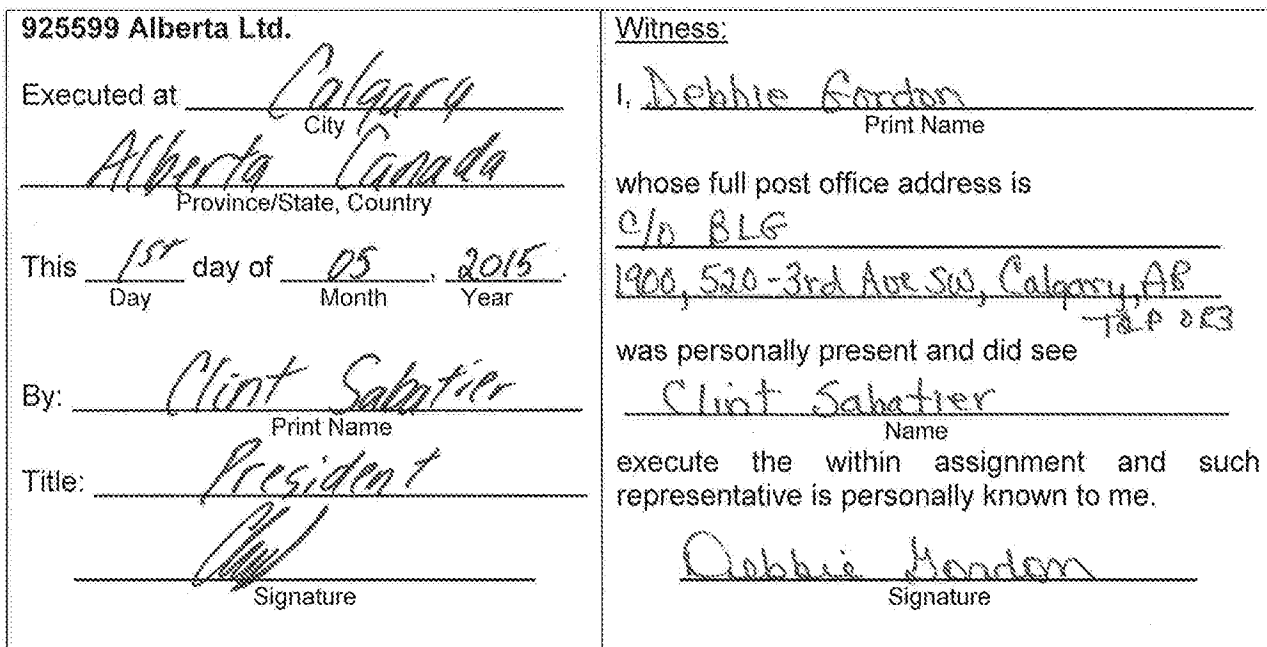 925599 Alberta Ltd.
Executed at Calgary
City
Alberta Canada
Province/State, Country
This 1st day of 05, 2015.
Day Month Year
By: Clint Sabatier
Print Name
Title: President
Signature
Witness:
I, Debbie Gordon
Print Name
whose full post office address is
c/o BLG
1900, 520-3rd Ave SW, Calgary, AB
T2P 0R3
was personally present and did see
Clint Sabatier
Name
execute the within assignment and such
representative is personally known to me.
Debbie Gordon
Signature